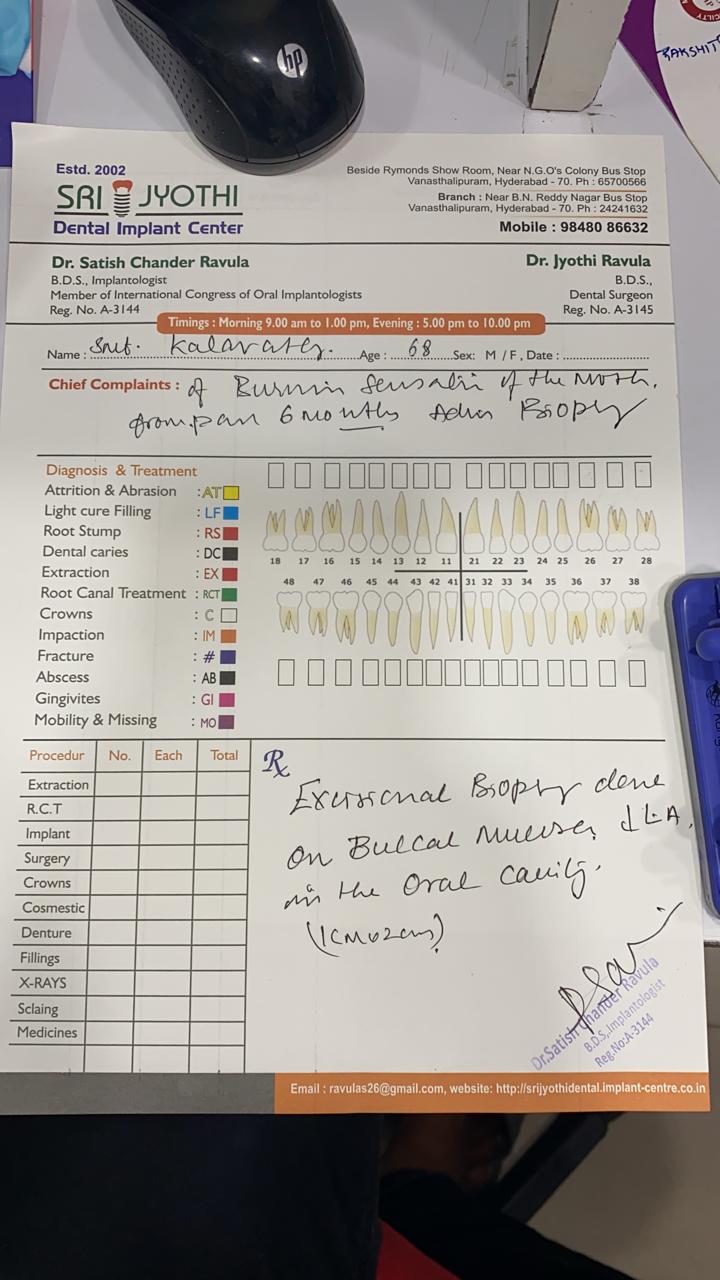 hp
RAKSHIT
Estd. 2002
SRI JYOTHI
Dental Implant Center
Beside Rymonds Show Room, Near N.G.O's Colony Bus Stop
Vanasthalipuram, Hyderabad - 70. Ph : 65700566
Branch : Near B.N. Reddy Nagar Bus Stop
Vanasthalipuram, Hyderabad - 70. Ph : 24241632
Mobile : 98480 86632
Dr. Satish Chander Ravula
B.D.S., Implantologist
Member of International Congress of Oral Implantologists
Reg. No. A-3144
Dr. Jyothi Ravula
B.D.S.,
Dental Surgeon
Reg. No. A-3145
Timings : Morning 9.00 am to 1.00 pm, Evening : 5.00 pm to 10.00 pm
Name : Smt. Age : 68 Sex: M / F, Date :
Chief Complaints : of of the
6 months Biopsy
Diagnosis & Treatment
Attrition & Abrasion : AT
Light cure Filling : LF
Root Stump : RS
Dental caries : DC
Extraction : EX
Root Canal Treatment : RCT
Crowns : C
Impaction : IM
Fracture : #
Abscess : AB
Gingivites : GI
Mobility & Missing : MO
18 17 16 15 14 13 12 11 21 22 23 24 25 26 27 28
48 47 46 45 44 43 42 41 31 32 33 34 35 36 37 38
Procedur No. Each Total
Extraction
R.C.T
Implant
Surgery
Crowns
Cosmestic
Denture
Fillings
X-RAYS
Sclaing
Medicines
Rx
Excisional Biopsy done
on L.A.
in the Oral Cavity.
Dr.Satish Chander Ravula
B.D.S,Implantologist
Reg.No:A-3144
Email : ravulas26@gmail.com, website: http://srijyothidental.implant-centre.co.in